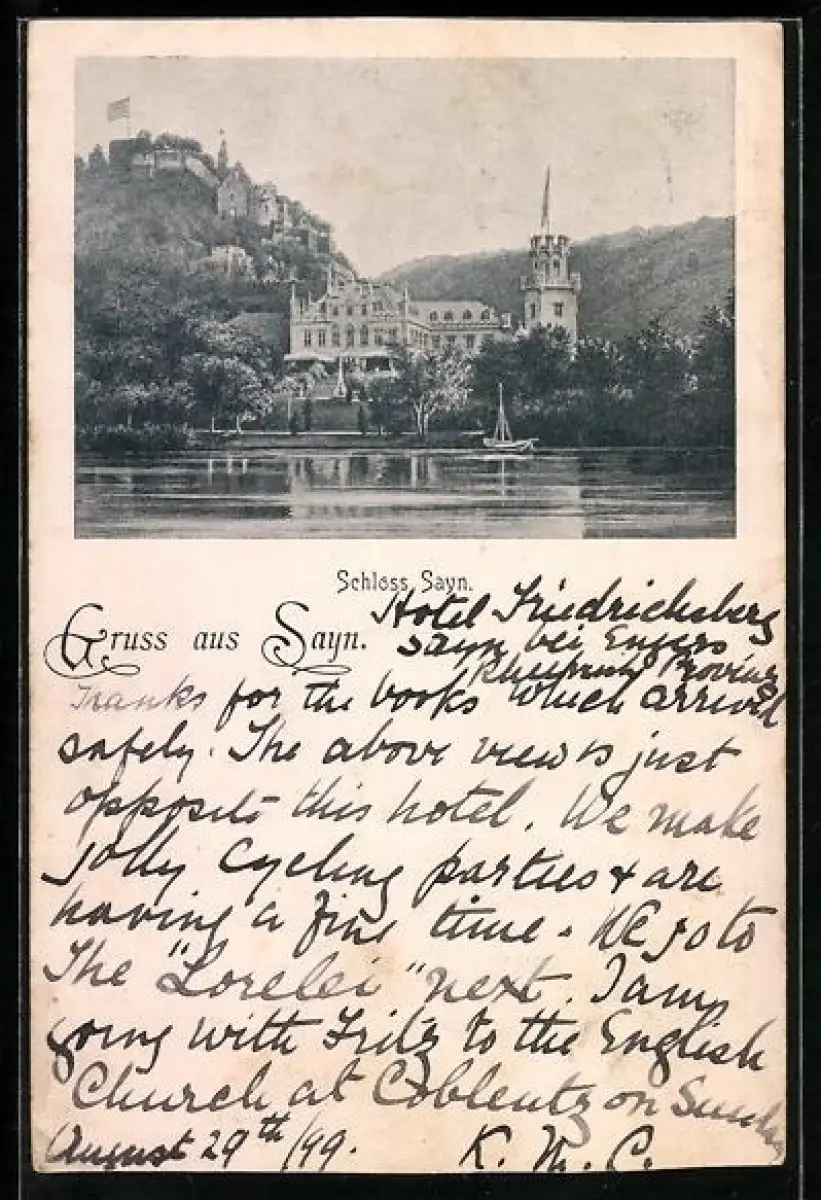 Schloss Sayn.
Gruss aus Sayn.
Hotel Friedrichsberg
Sayn bei Engers
Provinz
Thanks for the books which arrived
safely. The above view is just
opposite this hotel. We make
jolly cycling parties & are
having a fine time. We go to
the "Lorelei" next. I am
going with Fritz to the English
Church at Coblentz on Sunday
August 29th /99. K. M. C.